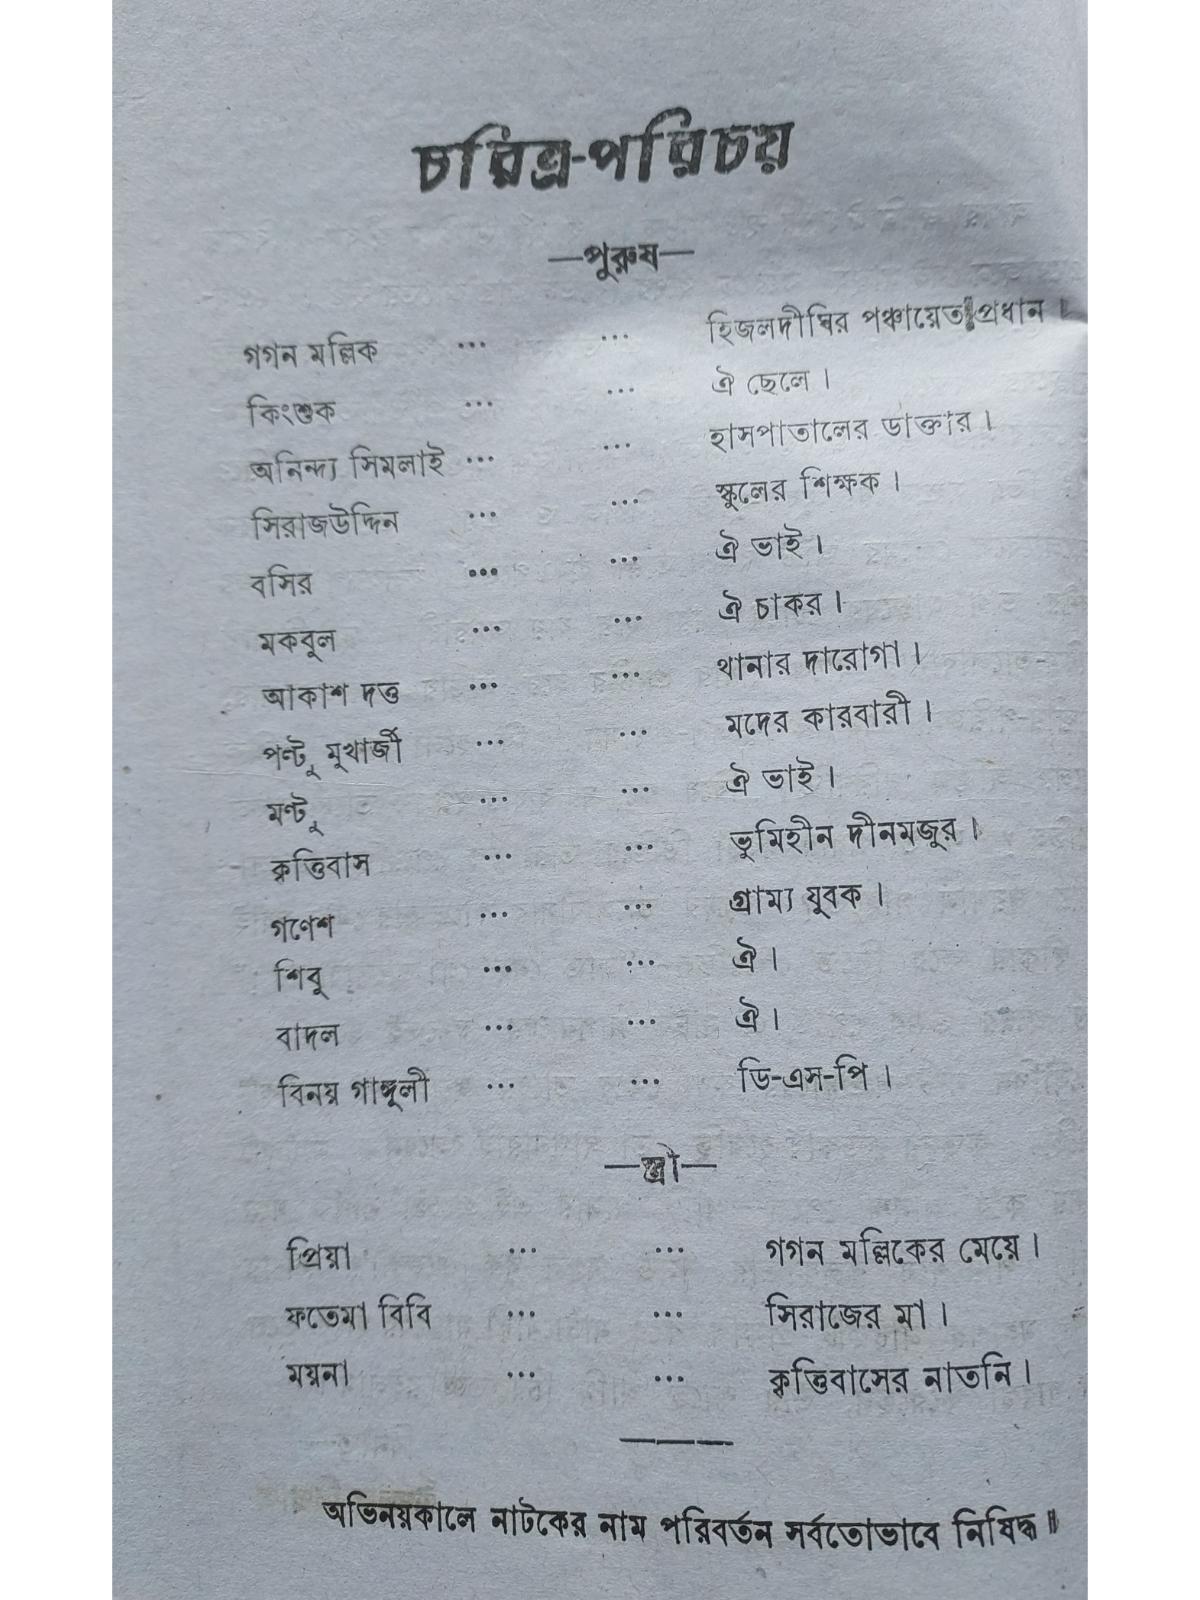 চরিত্র-পরিচয়
—পুরুষ—
গগন মল্লিক ... ... হিজলদীঘির পঞ্চায়েত প্রধান ।
কিংশুক ... ... ঐ ছেলে ।
অনিন্দ্য সিমলাই ... ... হাসপাতালের ডাক্তার ।
সিরাজউদ্দিন ... ... স্কুলের শিক্ষক ।
বসির ... ... ঐ ভাই ।
মকবুল ... ... ঐ চাকর ।
আকাশ দত্ত ... ... থানার দারোগা ।
পণ্টু মুখার্জী ... ... মদের কারবারী ।
মণ্টু ... ... ঐ ভাই ।
কৃত্তিবাস ... ... ভূমিহীন দীনমজুর ।
গণেশ ... ... গ্রাম্য যুবক ।
শিবু ... ... ঐ ।
বাদল ... ... ঐ ।
বিনয় গাঙ্গুলী ... ... ডি-এস-পি ।
—স্ত্রী—
প্রিয়া ... ... গগন মল্লিকের মেয়ে ।
ফতেমা বিবি ... ... সিরাজের মা ।
ময়না ... ... কৃত্তিবাসের নাতনি ।
অভিনয়কালে নাটকের নাম পরিবর্তন সর্বতোভাবে নিষিদ্ধ ॥